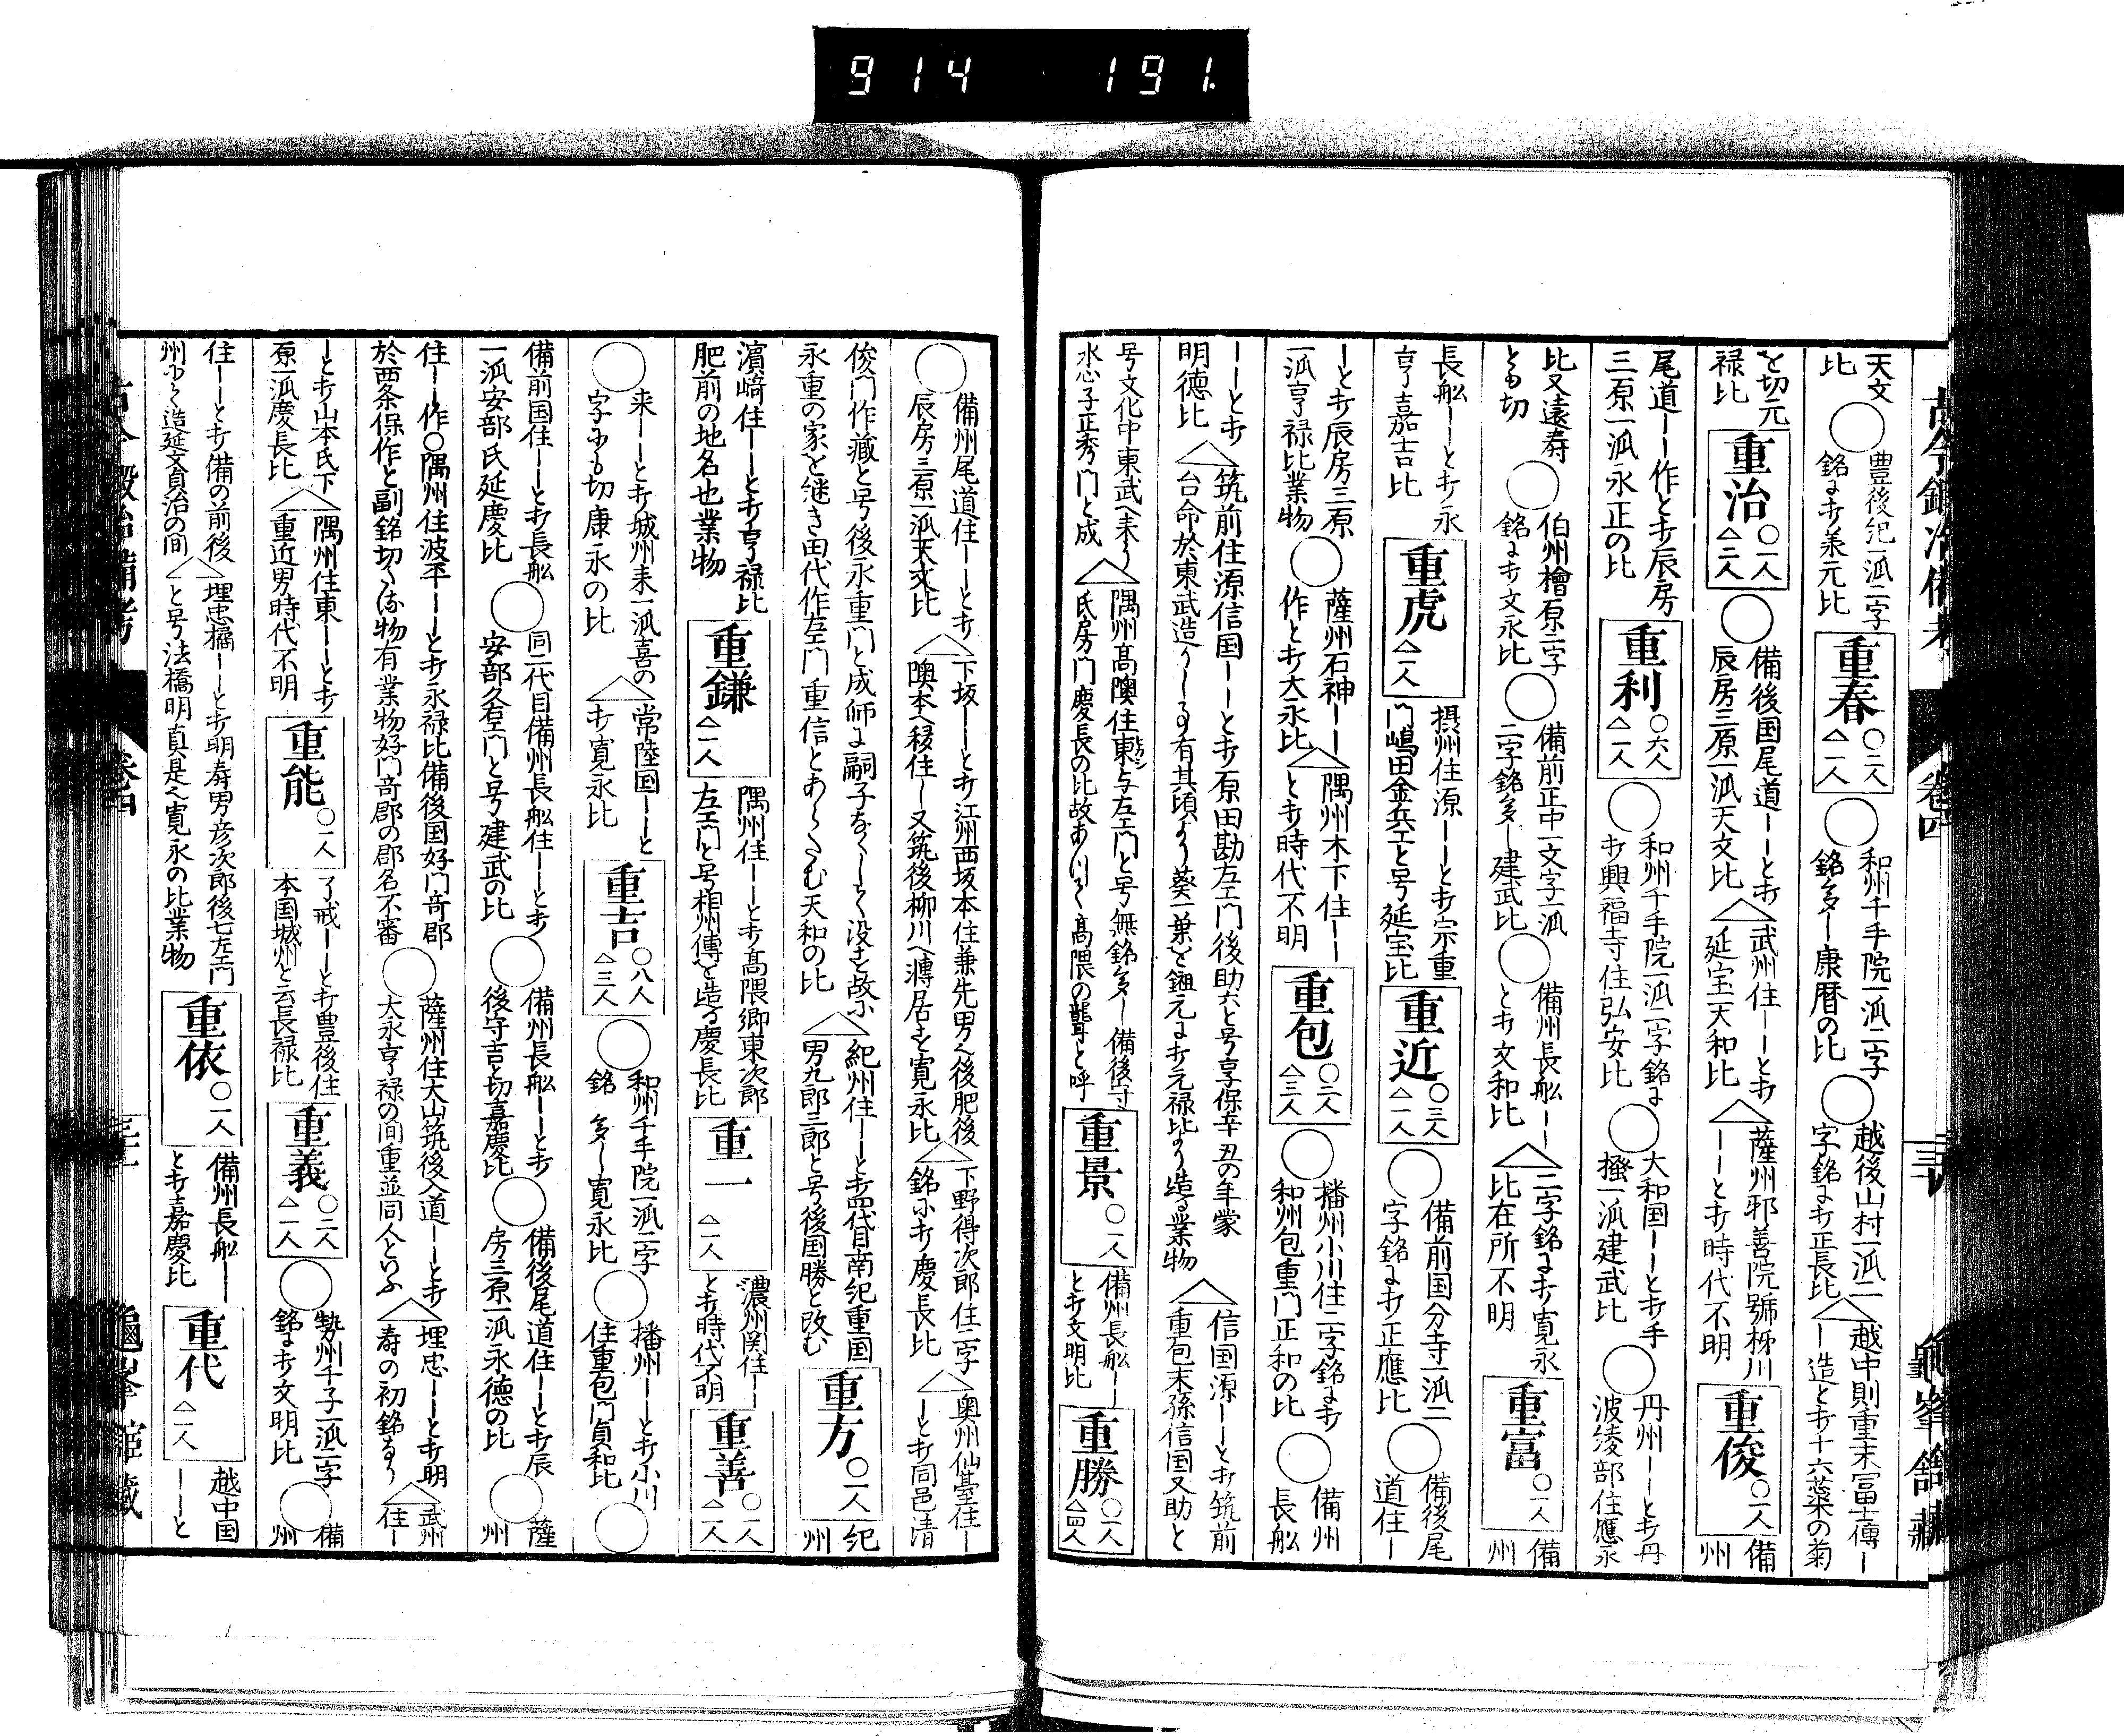 914 191.
天文
比
◯豊後紀一派二字
銘ニ打義元比
重春 ○二人 △一人
◯和州千手院一派二字
銘多し康暦の比
◯越後山村一派二
字銘ニ打正長比
△越中則重末冨士傳ー
ー造と打十六葉の菊
を切元
禄比
重治 ○一人 △二人
◯備後国尾道ーーと打
辰房三原一派天文比
△武州住ーーと打
延宝天和比
△薩州邪善院號柳川
ーーと打時代不明
重俊 ○一人
備
州
尾道ーー作と打辰房
三原一派永正の比
重利 ○六人 △一人
◯和州千手院一派二字銘ニ
打興福寺住弘安比
◯大和国ーーと打手
掻一派建武比
◯丹州ーーと打丹
波綾部住應永
比又遠寿
とも切
◯伯州檜原二字
銘ニ打文永比
◯備前正中一文字一派
二字銘多し建武比
◯備州長船ーー
と打文和比
△二字銘ニ打寛永
比在所不明
重富 ○一人
備
州
長船ーーと打永
亨嘉吉比
重虎 △一人
摂州住源ーーと打宗重
門嶋田金兵エと号延宝比
重近 ○三人 △一人
◯備前国分寺一派二
字銘ニ打正應比
◯備後尾
道住ー
ーと打辰房三原
一派亨禄比業物
◯薩州石神ーー
作と打大永比
△隅州木下住ーー
と打時代不明
重包 ○二人 △三人
◯播州小川住二字銘ニ打
和州包重門正和の比
◯備州
長船
ーーと打
明徳比
△筑前住源信国ーーと打原田勘左エ門後助六と号享保辛丑の年蒙
台命於東武造りし有其頃より葵一葉を鎺元ニ打元禄比より造る業物
△信国源ーーと打筑前
重包末孫信国又助と
号文化中東武へ来り
水心子正秀門と成
△隅州高隈住東与左エ門と号無銘多し備後守
氏房門慶長の比故あつて高隈の聾と呼
重景 ○一人
備州長船ーー
と打文明比
重勝 ○二人 △四人
◯備州尾道住ーーと打
辰房三原一派天文比
△下坂ーーと打江州西坂本住兼先男へ後肥後
隈本へ移住し又筑後柳川へ漙居を寛永比
△下野得次郎住二字
銘ニ打慶長比
△奥州仙臺住ー
ーと打同邑清
俊門作藏と号後永重門と成師ニ嗣子なくして没を故ニ
永重の家を継き田代作左エ門重信とあらたむ天和の比
△紀州住ーーと打四代目南紀重国
男九郎三郎と号後国勝と改む
重方 ○一人
紀
州
濵﨑住ーーと打亨禄比
肥前の地名也業物
重鎌 △一人
隅州住ーーと打髙隈郷東次郎
左エ門と号相州傳を造る慶長比
重一 △一人
濃州関住ーー
と打時代不明
重善 ○一人 △一人
◯来ーと打城州来一派喜の
字にも切康永の比
△常陸国ーーと
打寛永比
重吉 ○八人 △三人
◯和州千手院一派二字
銘多し寛永比
◯播州ーーと打小川
住重包門貞和比
◯
備前国住ーーと打長船
一派安部氏延慶比
◯同二代目備州長船住ーーと打
安部久右エ門と号建武の比
◯備州長船ーーと打
後守吉と切嘉慶比
◯備後尾道住ーーと打辰
房三原一派永徳の比
◯薩
州
住ーー作○隅州住波平ーーと打永禄比備後国好門奇郡
於西条保作と副銘切る物有業物好門奇郡の郡名不審
◯薩州住大山筑後入道ーーと打
大永亨禄の間重並同人といふ
△埋忠ーーと打明
寿の初銘なり
△武州
住ー
ーと打山本氏下
原一派慶長比
△隅州住東ーーと打
重近男時代不明
重能 ○一人
了戒ーーと打豊後住
本国城州と云長禄比
重義 ○二人 △一人
◯勢州千子一派二字
銘ニ打文明比
◯備
州
住ーーと打備の前後
州ニて造延文貞治の間
△埋忠橘ーーと打明寿男彦次郎後七左エ門
と号法橋明真是へ寛永の比業物
重依 ○一人
備州長船ーー
と打嘉慶比
重代 △一人
越中国
ーーと